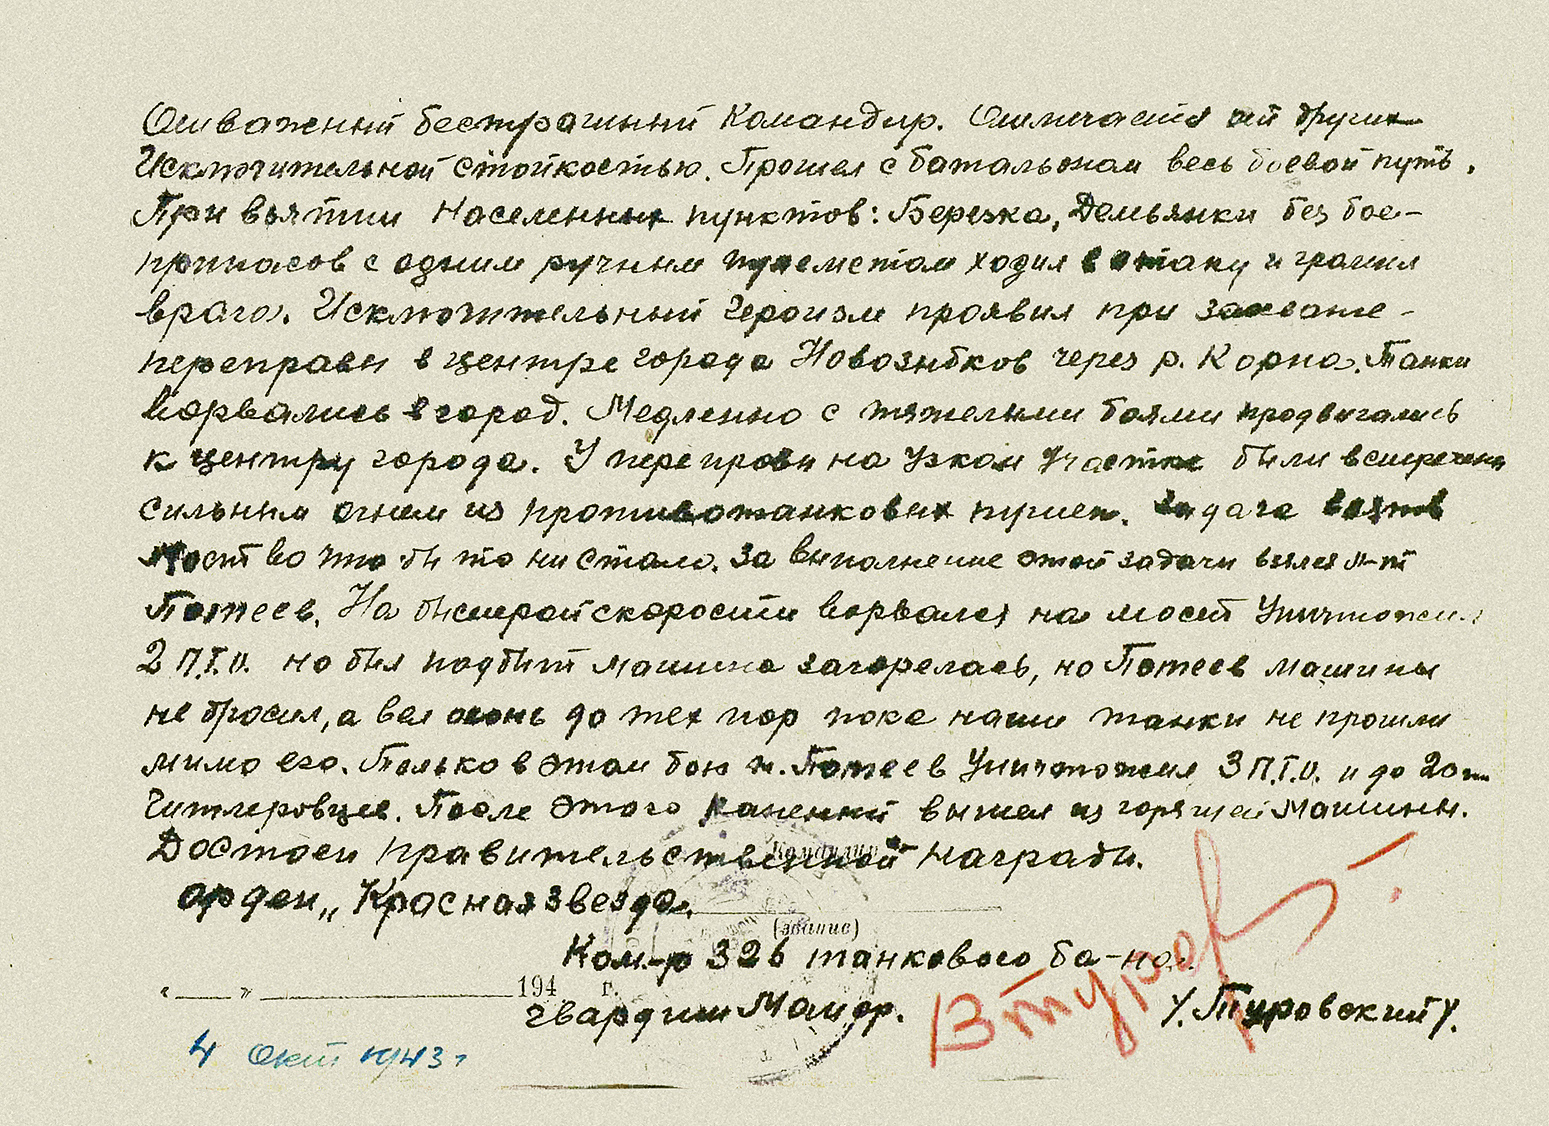 Отважений бестрашний командир. Отличается от других
Исключительной стойкостью. Прошел с батальоном весь боевой путь.
При взятии населенных пунктов: Березка, Демьянки без бое-
припасов с одним ручным пулеметом ходил в атаку и громил
врага. Исключительный героизм проявил при захвате-
переправы в центре города Новозыбков через р. Корна. Танки
ворвались в город. Медленно с тяжелыми боями продвигались
к центру города. У переправы на узком участке были встречены
сильным огнем из противотанковых пушек. Задача взять
мост во что бы то ни стало. За выполнение этой задачи взялся л-т
Потеев. На быстрой скорости ворвался на мост уничтожил
2 П.Т.О. но был подбит машина загорелась, но Потеев машины
не бросил, а вел огонь до тех пор пока наши танки не прошли
мимо его. Только в этом бою т. Потеев уничтожил 3 П.Т.О. и до 20ти
гитлеровцев. После этого раненый вышел из горящей машины.
Достоен правительственной награды.
орден „Красная звезда".
(звание)
Ком-р 326 танкового ба-на.
"___" ___ 194 г.
гвардии Майор. /.Туровский/.
4 окт 1943 г